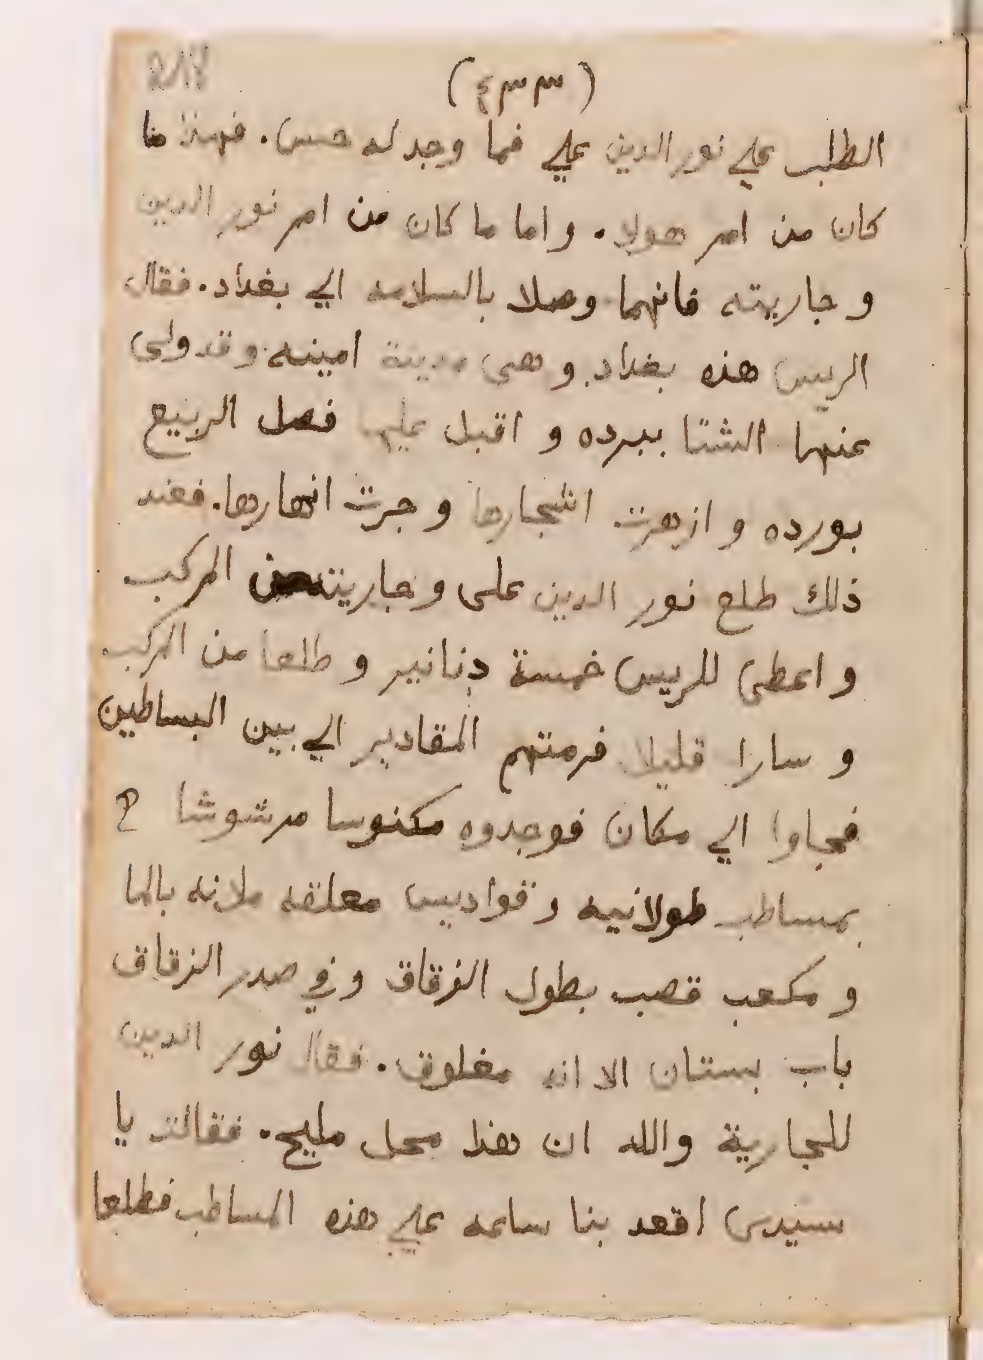 (٤٣٣)
الطلب علي نور الدين علي فما وجد له حس. فهذا ما
كان من امر هولا. واما ما كان من امر نور الدين
و جاريته فانهما وصلا بالسلامه الي بغداد. فقال
الريس هذه بغداد وهى مدينة امينه وقد ولى
عنها الشتا ببرده و اقبل عليها فصل الربيع
بورده و ازهرت اشجارها و جرت انهارها. فعند
ذلك طلع نور الدين على و جاريته من المركب
و اعطى للريس خمسة دنانير و طلعا من المركب
و سارا قليلا فرمتهم المقادير الي بين البساطين
فجاوا الي مكان فوجدوه مكنوسا مرشوشا
بمساطب طولانيه و قواديس معلقه ملانه بالما
و مكعب قصب بطول الزقاق و في صدر الزقاق
باب بستان الا انه مغلوق. فقال نور الدين
للجارية والله ان هذا محل مليح. فقالت يا
سيدى اقعد بنا ساعه علي هذه المساطب فطلعا